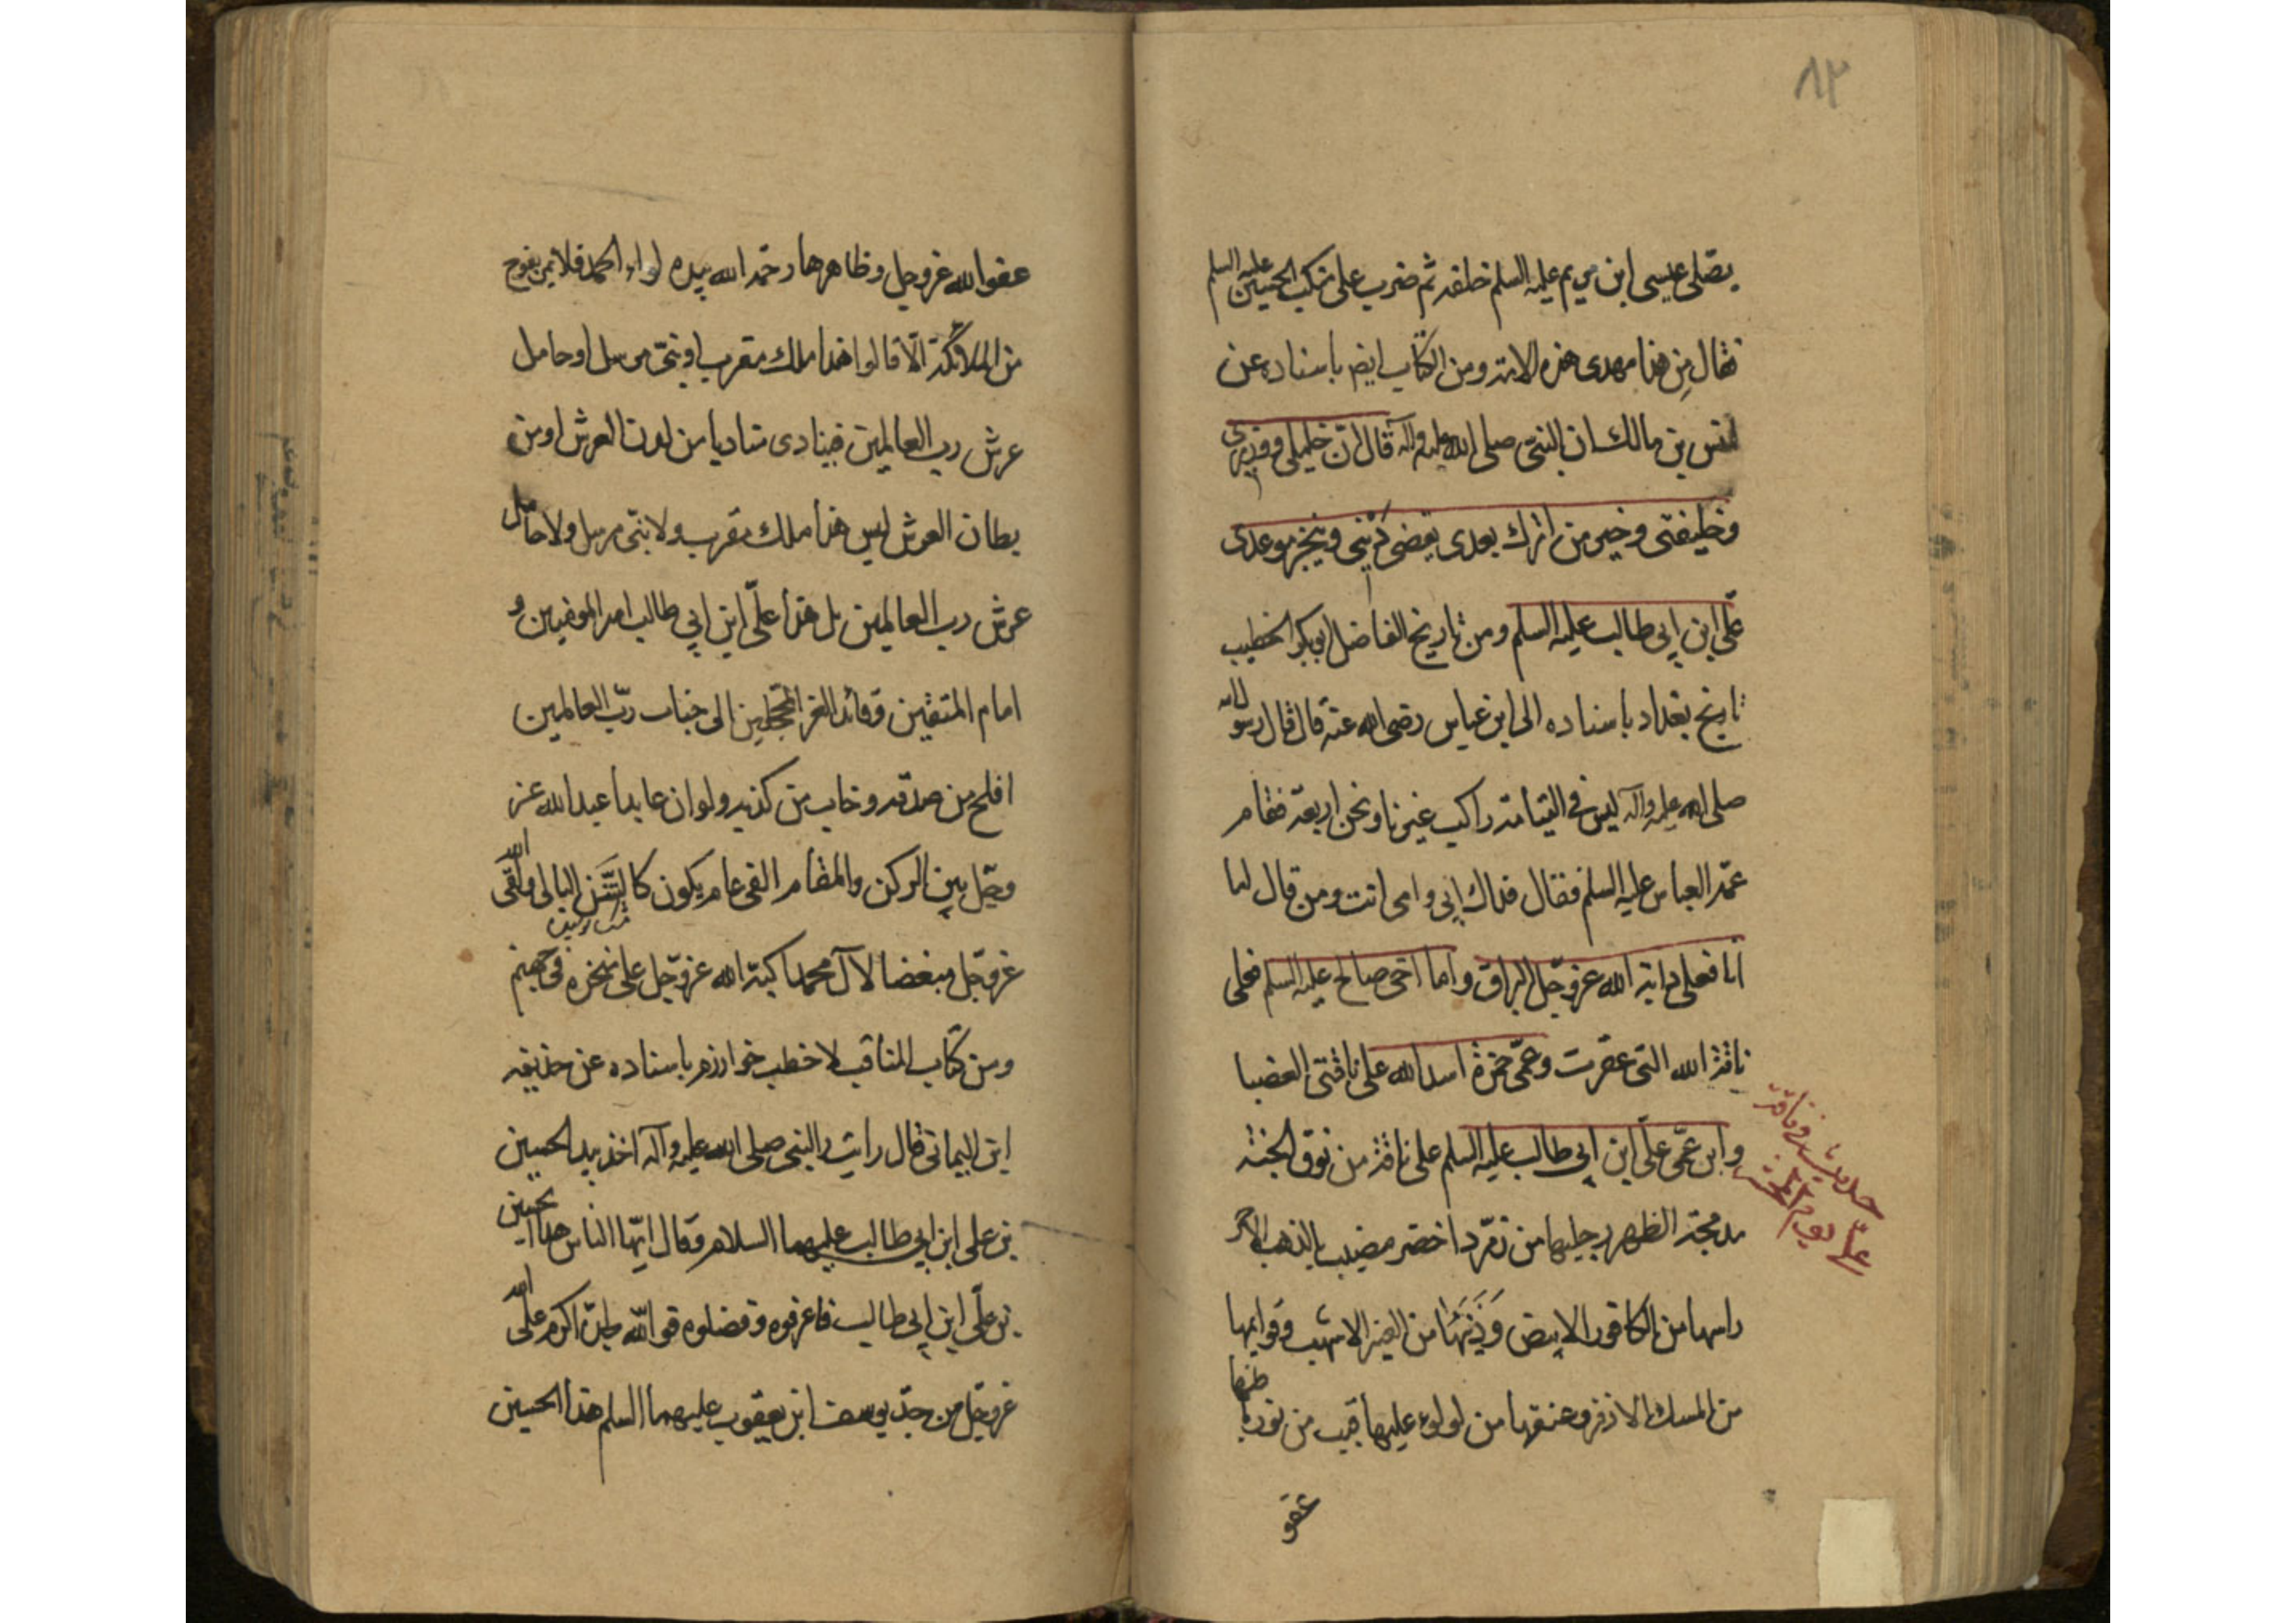 ٨٢
يصلى عيسى ابن مريم عليه السلم خلفه ثم ضرب على منكب الحسين عليه السلم
فقال من هذا مهدى هذه الامة ومن الكتاب ايضم باسناده عن
انس بن مالك ان النبى صلى الله عليه وآله قال انّ خليلى ووزيرى
وخليفتى وخير من اترك بعدى يقضى دينى وينجز موعدى
علّى ابن ابى طالب عليه السلم ومن تاريخ الفاضل ابوبكر الخطيب
تاريخ بغداد باسناده الى ابن عباس رضى الله عنه قال قال رسول الله
صلى الله عليه وآله ليس فى القيامة راكب غيرنا ونحن اربعة فقام
عمّه العباس عليه السلم فقال فداك ابى وامى انت ومن قال اما
انا فعلى دابة الله عزوجّل البراق واما اخى صالح عليه السلم فعلى
ناقة الله التى عقرت وعمّى حمزة اسد الله على ناقتى العضبا
وابن عمّى علّى ابن ابى طالب عليه السلم على ناقة من نوق الجنة
مدمجة الظهر رجليها من زمّرد اخضر مضبب بالذهب الاحمر
راسها من الكافور الابيض وذنبها من العنبر الاشهب وقوايمها
من المسك الاذفر وعنقها من لولوء عليها قبب من نور باطنها
عفو
حديث
علّى يوم
عفو الله عزوجل وظاهرها رحمة الله بيده لواء الحمد فلا يمن بفوح
من الملائكة الّا قالوا هذا ملك مقرب او نبى مرسل او حامل
عرش رب العالمين فينادى مناديا من لدن العرش او من
بطان العرش ليس هذا ملك مقرب ولا نبى مرسل ولا حامل
عرش رب العالمين بل هذا علّى ابن ابى طالب امير المومنين و
امام المتقين وقائد الغر المحجلين الى جناب ربّ العالمين
افلح من صدقه وخاب من كذبه ولو ان عابدا عبد الله عز
وجّل بين الركن والمقام الفى عام يكون كالشن البالى ولقى الله
عزوجّل مبغضا لآل محمد اكبّه الله عزوجّل على منخره فى جهنم
ومن كتاب المناقب لاخطب خوارزم باسناده عن حذيفه
ابن اليمانى قال رايت النبى صلى الله عليه وآله اخذ بيد الحسين
بن على ابن ابى طالب عليهما السلام وقال ايّها الناس هذا الحسين
بن علّى ابن ابى طالب فاعرفوه وفضلوه فو اللّه جدّه اكرم على الله
عزوجّل من جدّ يوسف ابن يعقوب عليهما السلم هذا الحسين